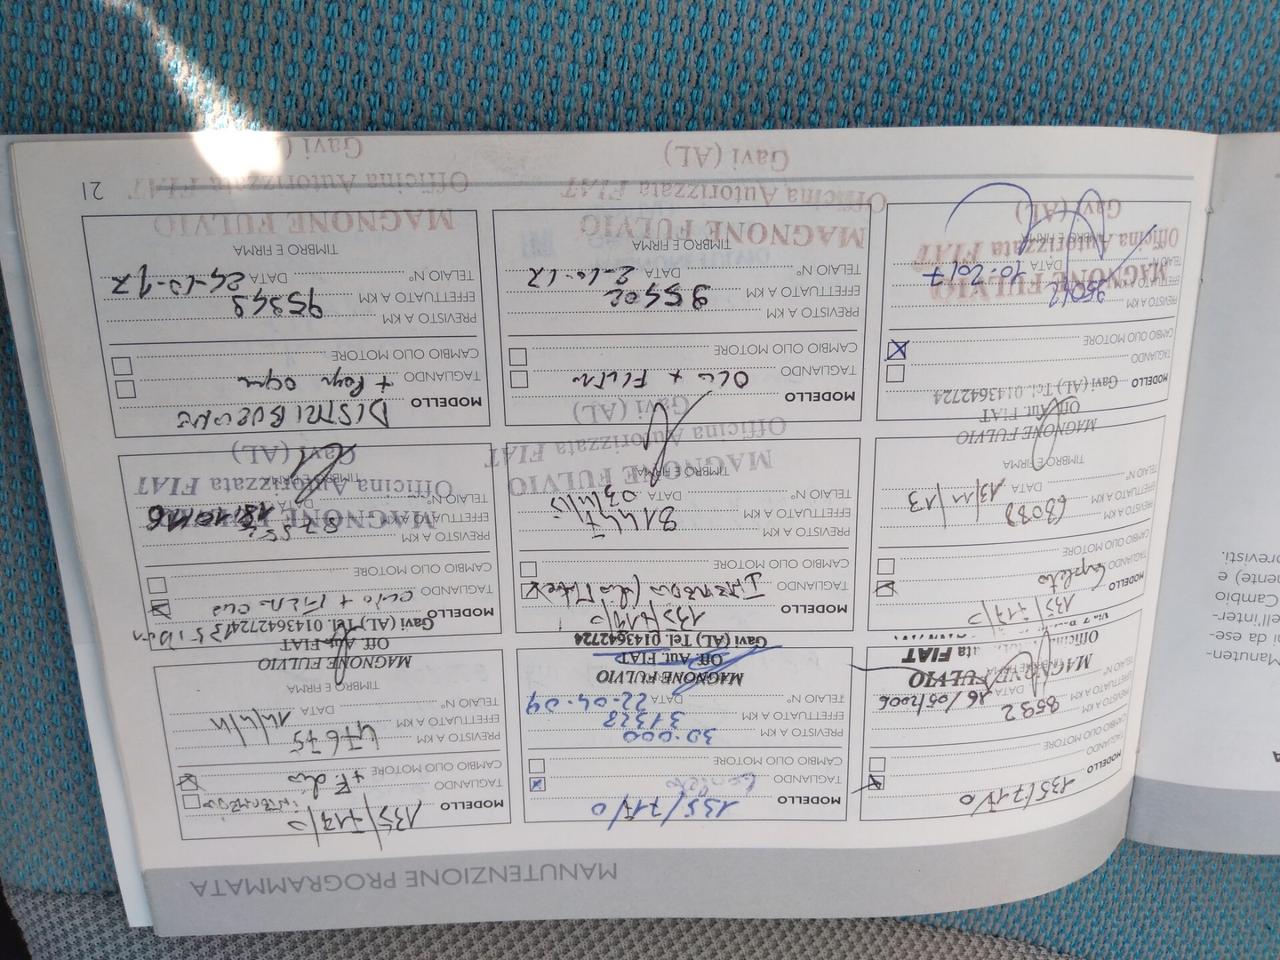 MANUTENZIONE PROGRAMMATA
MODELLO 135/717/0
TAGLIANDO
CAMBIO OLIO MOTORE
PREVISTO A KM
EFFETTUATO A KM 8592
TELAIO N° DATA 16/05/2006
MAGNONE FULVIO
Officina
ata FIAT
MODELLO 135/717/0
TAGLIANDO
CAMBIO OLIO MOTORE
PREVISTO A KM 30.000
EFFETTUATO A KM 31328
TELAIO N° DATA 22-04-09
MAGNONE FULVIO
Off. Aut. FIAT
Gavi (AL) Tel. 0143642724
MODELLO 135/717/0
TAGLIANDO
+ F. olio
CAMBIO OLIO MOTORE
PREVISTO A KM
EFFETTUATO A KM 47675
TELAIO N° DATA
TIMBRO E FIRMA
MAGNONE FULVIO
Off. Aut. FIAT
Gavi (AL) Tel. 0143642724
MODELLO 135/717/0
TAGLIANDO Completo
CAMBIO OLIO MOTORE
PREVISTO A KM
EFFETTUATO A KM
TELAIO N° DATA 13/11/13
TIMBRO E FIRMA
MAGNONE FULVIO
Off. Aut. FIAT
Gavi (AL) Tel. 0143642724
MODELLO 135/717/0
TAGLIANDO
CAMBIO OLIO MOTORE
PREVISTO A KM
EFFETTUATO A KM 81447
TELAIO N° DATA 03/11/15
TIMBRO E FIRMA
MAGNONE FULVIO
Officina Autorizzata FIAT
Gavi (AL)
MODELLO
TAGLIANDO olio + Filtro olio
CAMBIO OLIO MOTORE
PREVISTO A KM
EFFETTUATO A KM
TELAIO N° DATA 18/10/16
TIMBRO E FIRMA
MAGNONE
Officina Autorizzata FIAT
Gavi (AL)
MODELLO
TAGLIANDO
CAMBIO OLIO MOTORE
PREVISTO A KM
EFFETTUATO A KM
TELAIO N° DATA 10-2017
TIMBRO E FIRMA
MAGNONE FULVIO
Officina Autorizzata FIAT
Gavi (AL)
MODELLO
TAGLIANDO OLIO + FILTRI
CAMBIO OLIO MOTORE
PREVISTO A KM
EFFETTUATO A KM 95402
TELAIO N° DATA 2-10-17
TIMBRO E FIRMA
MAGNONE FULVIO
Officina Autorizzata FIAT
Gavi (AL)
MODELLO DISTRIBUZIONE
TAGLIANDO
CAMBIO OLIO MOTORE
PREVISTO A KM
EFFETTUATO A KM 95949
TELAIO N° DATA 24-10-17
TIMBRO E FIRMA
MAGNONE FULVIO
Officina Autorizzata FIAT
Gavi (AL)
21
Manuten-
i da ese-
ell'inter-
Cambio
nente) e
revisti.